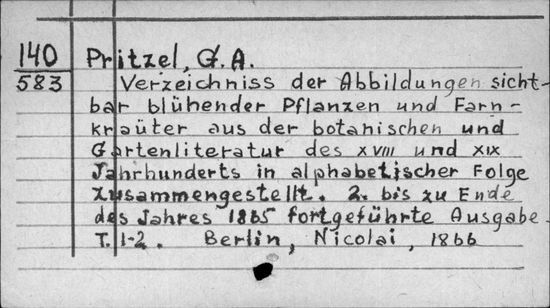 140 Pritzel, G. A.
583 Verzeichniss der Abbildungen sicht-
bar blühender Pflanzen und Farn-
kräuter aus der botanischen und
Gartenliteratur des XVIII und XIX
Jahrhunderts in alphabetischer Folge
zusammengestellt. 2. bis zu Ende
des Jahres 1865 fortgeführte Ausgabe.
T. 1-2. Berlin, Nicolai, 1866